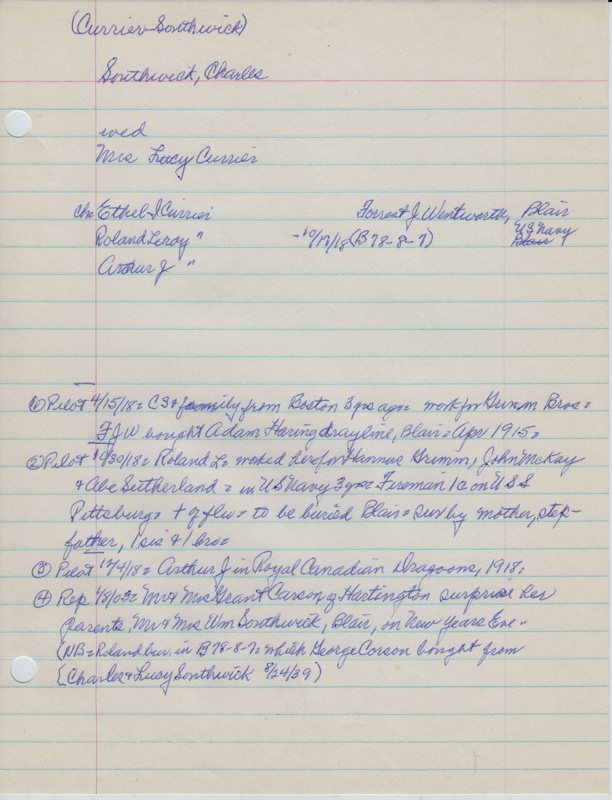 (Currier-Southwick)
Southwick, Charles
wed
Mrs Lucy Currier
chn Ethel I Currier Forrest J Wentworth, Blair
Roland Leroy " -10/17/18 (B78-8-7) US Navy Blair
Arthur J "
① Pilot 4/15/18= CS & family from Boston 3 yrs ago= work for Grimm Bros=
FJW bought Adam Haring drayline, Blair= Apr 1915=
② Pilot 10/30/18= Roland L= worked here for Hannus Grimm, John McKay
& Abe Sutherland = in US Navy 3 yrs= Fireman 1c on USS
Pittsburg= + of flu= to be buried Blair= sur by mother, step-
father, 1 sis & 1 bro=
③ Pilot 12/4/18= Arthur J in Royal Canadian Dragoons, 1918=
④ Rep 1/8/03= Mr & Mrs Grant Carson of Hartington surprise her
parents, Mr & Mrs Wm Southwick, Blair, on New Years Eve-
(NB= Roland bur. in B78-8-7= which George Corson bought from
[Charles & Lucy Southwick 8/24/39)